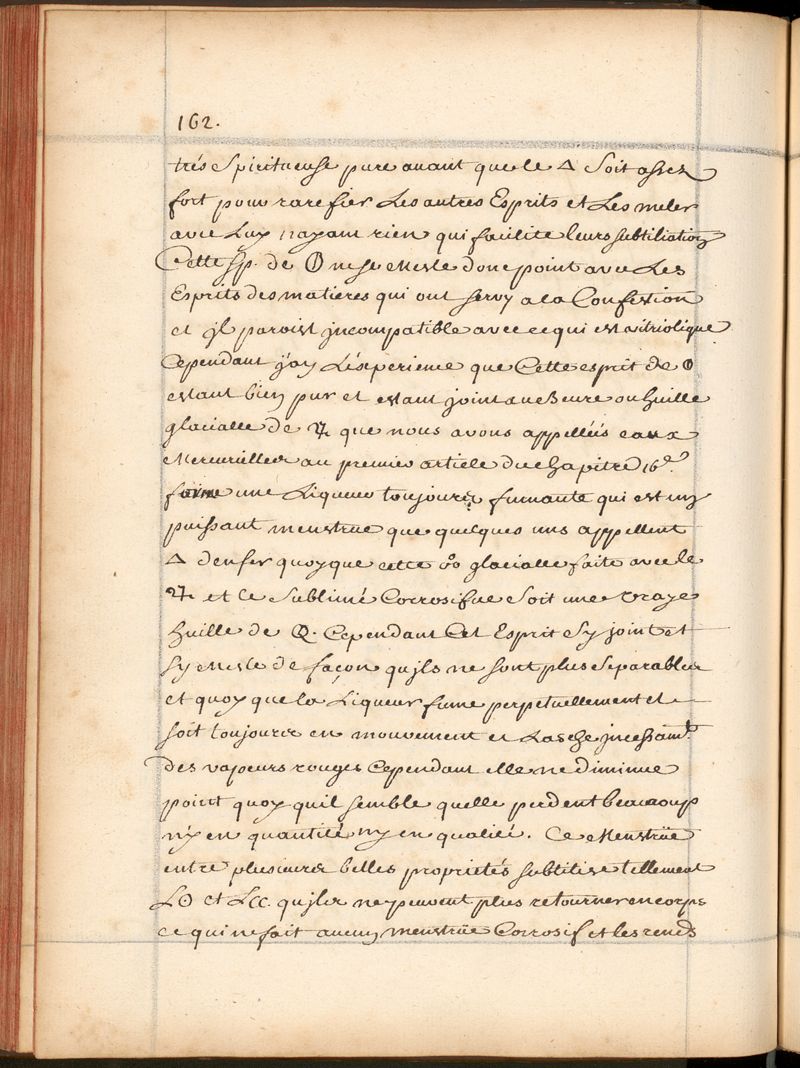 162.
très Spiritueuse pure auant que le △ Soit assez
fort pour rarefier Les autres Esprits et Les meler
auec Luy n'ayant rien qui facilite leurs subtiliation
Cette Sp. de ⦶ ne se Mesle donc point auec Les
Esprits des matieres qui ont servy a la Confection
et jl paroist jncompatible auec ce qui est vitriolique
Cependant j'ay L'experience que Cette esprit de ⦶
estant bien pur et estant joint au Beure ou huille
glacialle de ♃ que nous auons appellées eaux
Mercurielles au premier article du chapitre 16e.
forme une Liqueur toujours fumante qui est un
puissant menstrüe que quelques uns appellent
△ d'enfer quoyque cette glacialle faite auec le
♃ et le Sublimé Corrosif ne Soit une vraye
huille de Cependant Cet Esprit s'y joint et
s'y Mesle de façon qu'jls ne sont plus Separables
et quoy que la Liqueur fume perpetuellement et
soit toujours en mouuement et Lasche jncessamt.
des vapeurs rouges Cependant elle ne diminue
point quoy quil semble quelle perdent beaucoup
n'y en quantité ny en qualieé. Ce Menstrüe
entre plusieurs belles proprietés subtilise tellement
L☉ et L☾. qu'jls ne peuuent plus retourner en corps
ce qui ne fait aucun menstrüe Corrosif et les rends